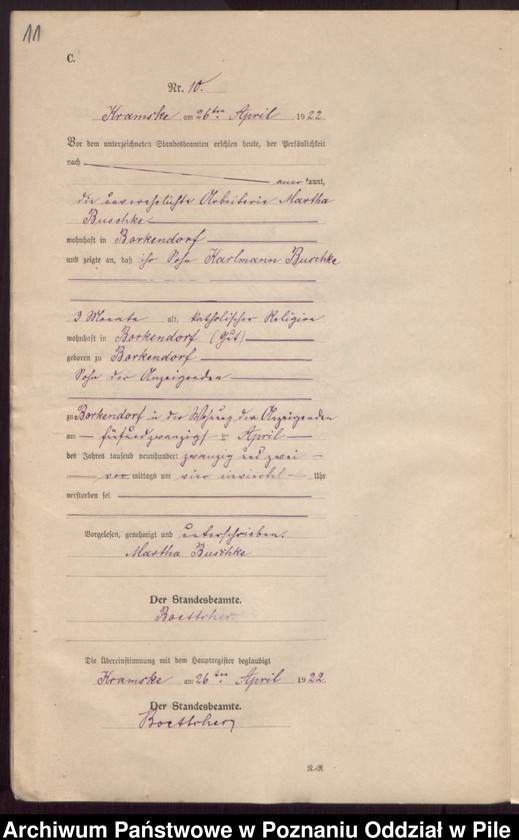 11
C.
Nr. 10.
Kramske am 26ten April 1922.
Vor dem unterzeichneten Standesbeamten erschien heute, der Persönlichkeit
nach
kannt,
die unverehelichte Arbeiterin Martha
Buschke
wohnhaft in Borkendorf
und zeigte an, daß ihr Sohn Karlmann Buschke
3 Monate alt, katholischer Religion
wohnhaft in Borkendorf (Gut)
geboren zu Borkendorf
Sohn der Anzeigenden
zu Borkendorf in der Wohnung der Anzeigenden
am fünfundzwanzigsten April
des Jahres tausend neunhundert zwanzig und zwei
vor mittags um vier einviertel Uhr
verstorben sei
Vorgelesen, genehmigt und unterschrieben.
Martha Buschke
Der Standesbeamte.
Boettcher.
Die Übereinstimmung mit dem Hauptregister beglaubigt
Kramske am 26ten April 1922.
Der Standesbeamte.
Boettcher
Archiwum Państwowe w Poznaniu Oddział w Pile